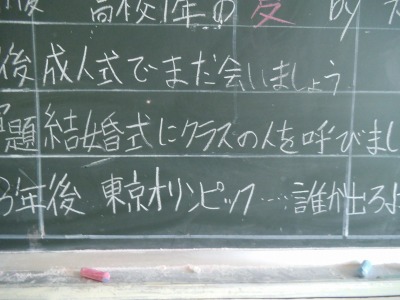 後 高校1年の夏 by
後成人式でまた会いましょう
題結婚式にクラスの人を呼びまし
3年後 東京オリンピック……誰が出ろよ